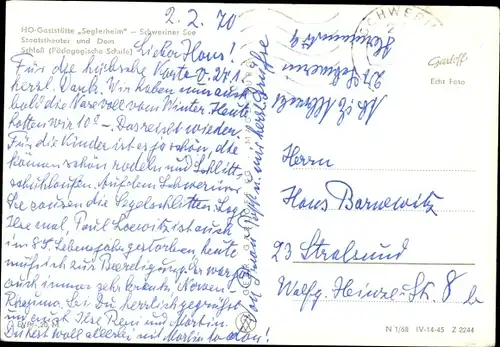 2.2.70
HO-Gaststätte „Seglerheim" – Schweriner See
Staatstheater und Dom
Schloß (Pädagogische Schule)
Lieber Hans!
Für die hübsche Karte v. 27.1.
herzl. Dank. Wir haben nun auch
bald die Nase voll vom Winter. Heute
hatten wir 10° – Das reicht wieder
Für die Kinder ist es ja schön, die
können schön rodeln und Schlitt-
schuhlaufen. Auf dem Schweriner
See sausen die Segelschlitten.
Paul Loewitz ist auch
im 85 Lebensjahr gestorben, heute
muß ich zur Beerdigung
auch immer sehr krank, Nerven
Sei Du herzlich gegrüßt
und auch Ihr Reni und Martin.
Du hast wohl alles mit Martin
SCHWERIN
27 Schwerin
Garloff
Echt Foto
Herrn
Hans Barnewitz
23 Stralsund
Wolfg. Heinze-Str. 8 b
N 1/68 IV-14-45 Z 2244